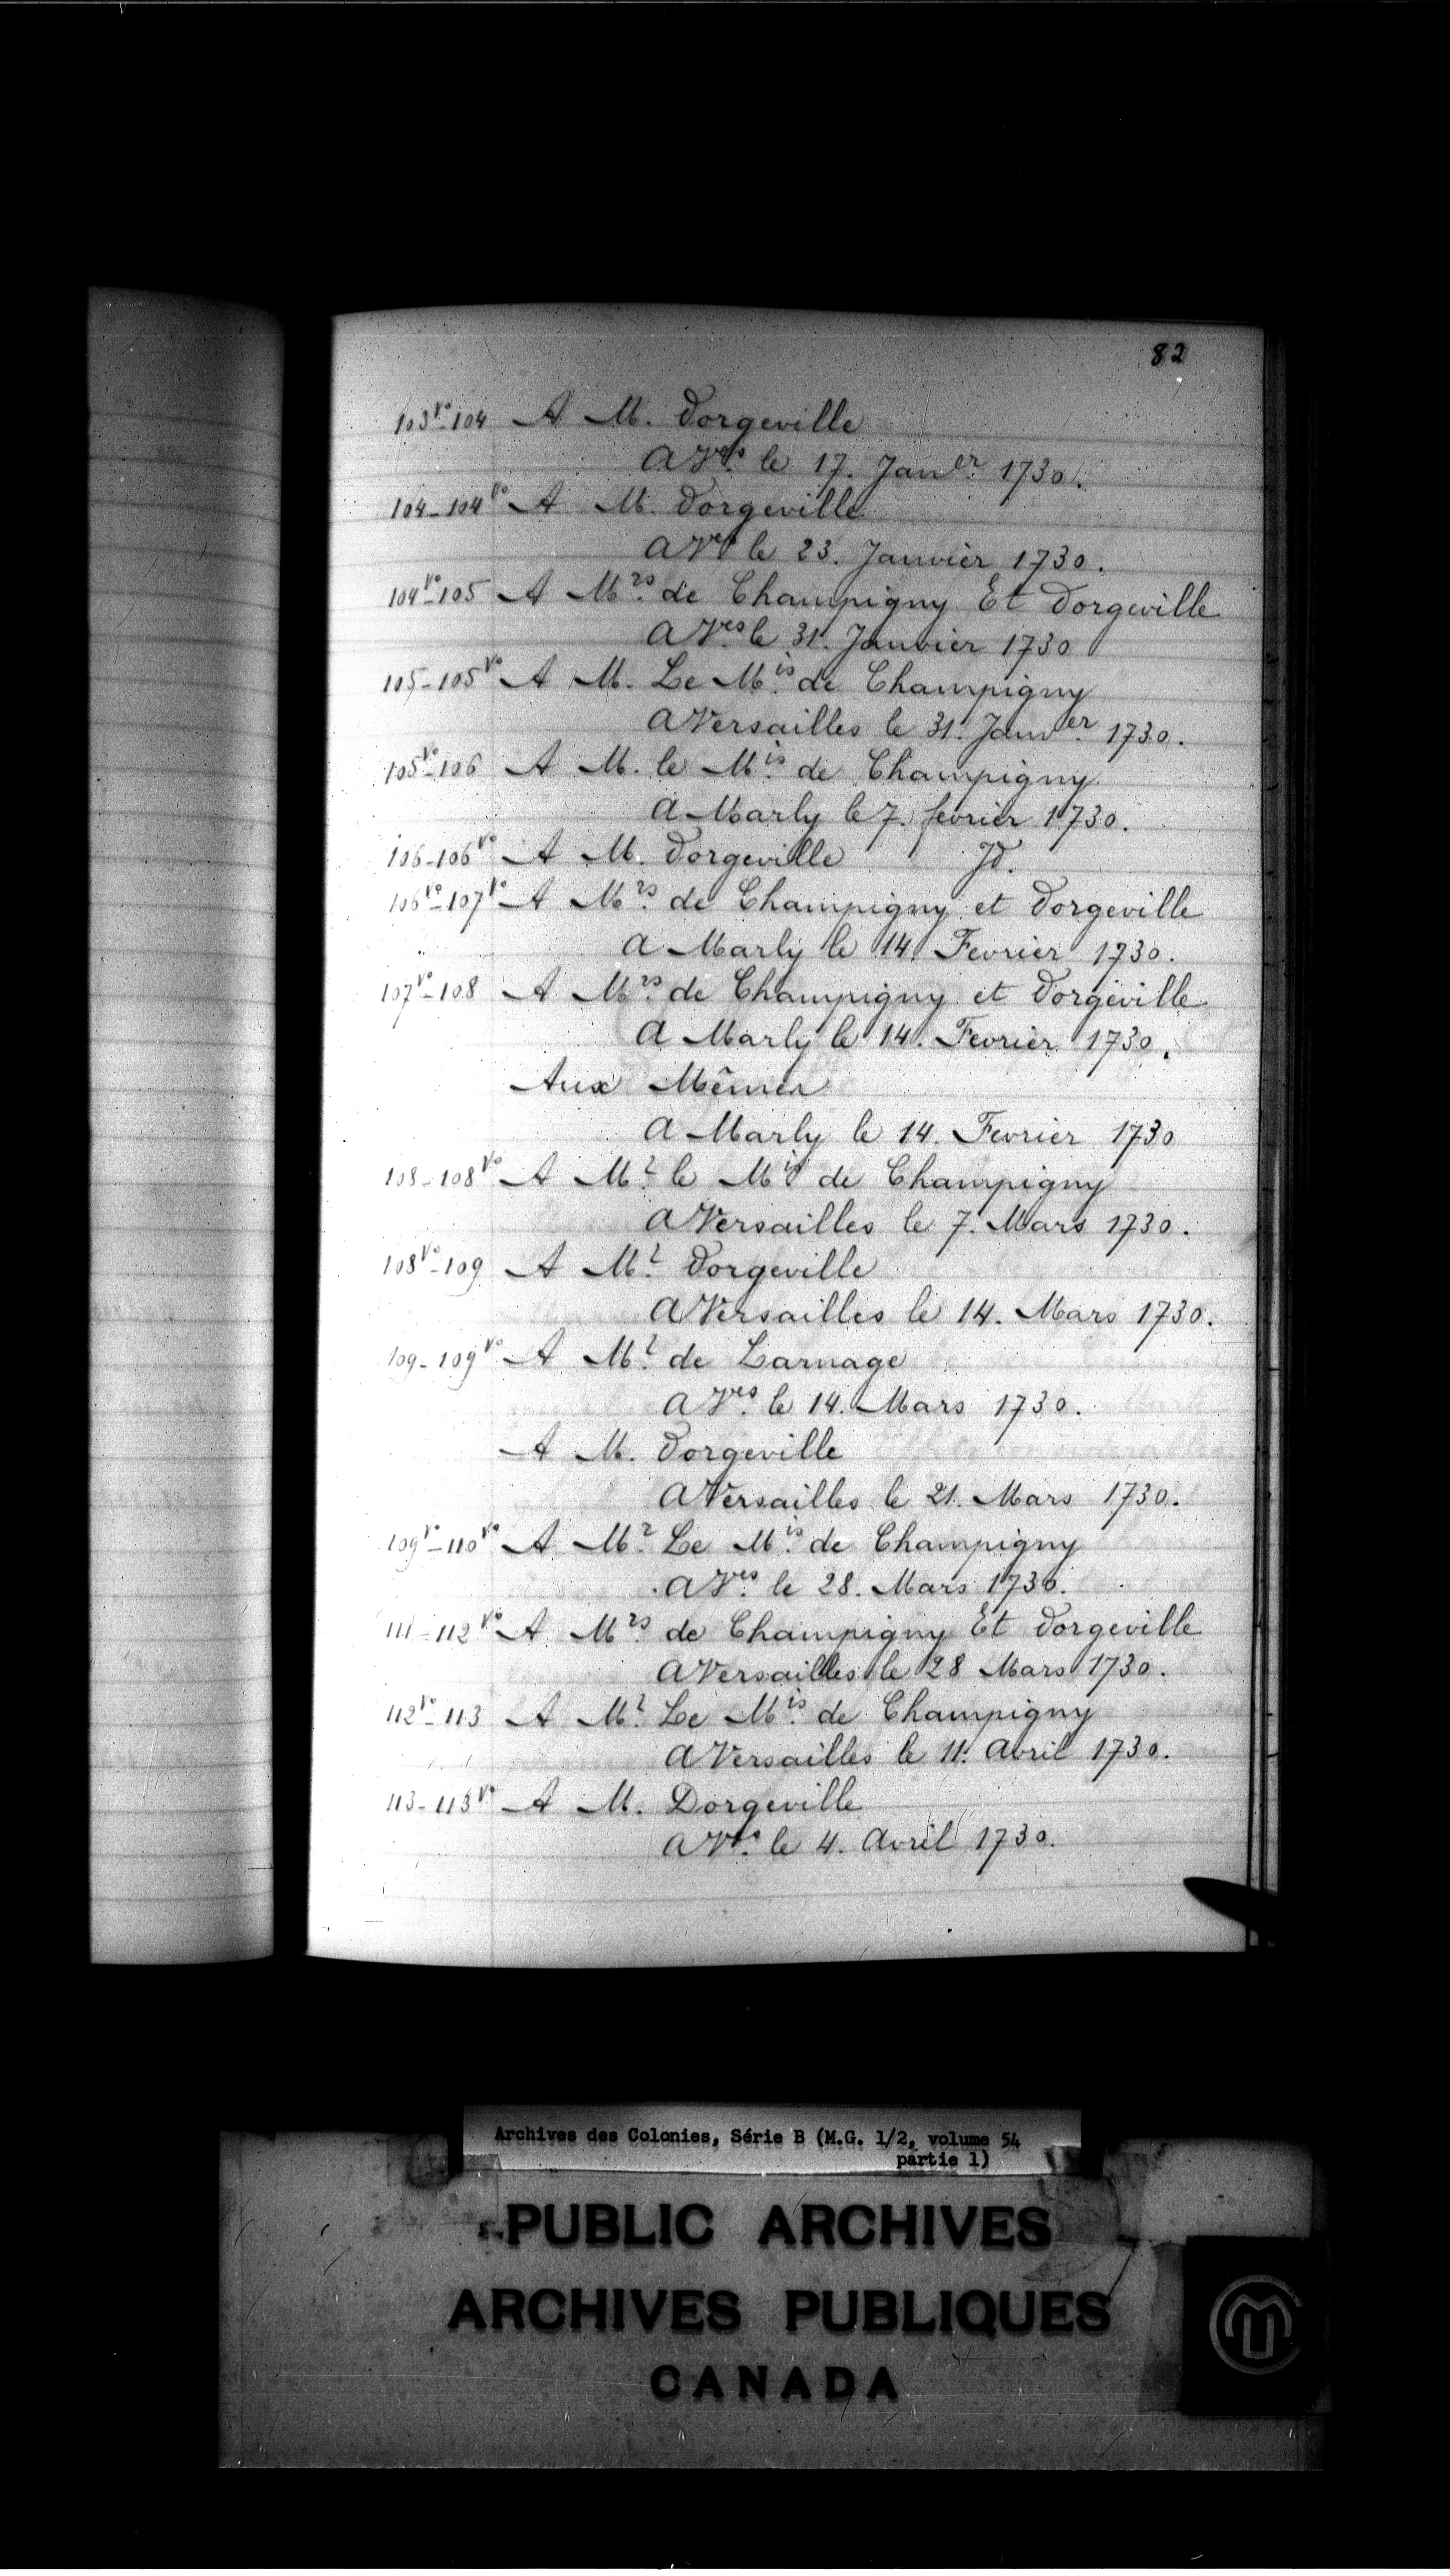 82
103vo-104 A M. Dorgeville
A Ves. le 17. Janer. 1730.
104-104vo A M. Dorgeville
A Ves le 23. Janvier 1730.
104vo-105 A Mrs. de Champigny Et Dorgeville
A Ves. le 31. Janvier 1730
105-105vo A M. Le Mis. de Champigny
A Versailles le 31. Janver. 1730.
105vo-106 A M. le Mis. de Champigny
A Marly le 7. fevrier 1730.
106-106vo A M. Dorgeville Jd.
106vo-107vo A Mrs. de Champigny et Dorgeville
A Marly le 14. Fevrier 1730.
107vo-108 A Mrs. de Champigny et Dorgeville
A Marly le 14. Fevrier 1730.
Aux Mêmes
A Marly le 14. Fevrier 1730
108-108vo A Mr. le Mis de Champigny
A Versailles le 7. Mars 1730.
108vo-109 A Mr. Dorgeville
A Versailles le 14. Mars 1730.
109-109vo A Mr. de Larnage
A Ves. le 14. Mars 1730.
A M. Dorgeville
A Versailles le 21. Mars 1730.
109vo-110vo A Mr. Le Mis. de Champigny
A Ves. le 28. Mars 1730.
111-112vo A Mrs. de Champigny Et Dorgeville
A Versailles le 28 Mars 1730.
112vo-113 A Mr. Le Mis. de Champigny
A Versailles le 11. Avril 1730.
113-113vo A M. Dorgeville
A Ves. le 4. Avril 1730.
Archives des Colonies, Série B (M.G. 1/2, volume 54
partie 1)
PUBLIC ARCHIVES
ARCHIVES PUBLIQUES
CANADA